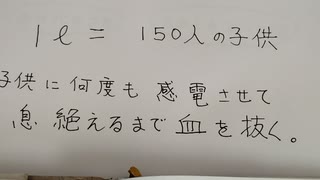 1ℓ = 150人の子供
子供に何度も感電させて
息絶えるまで血を抜く。